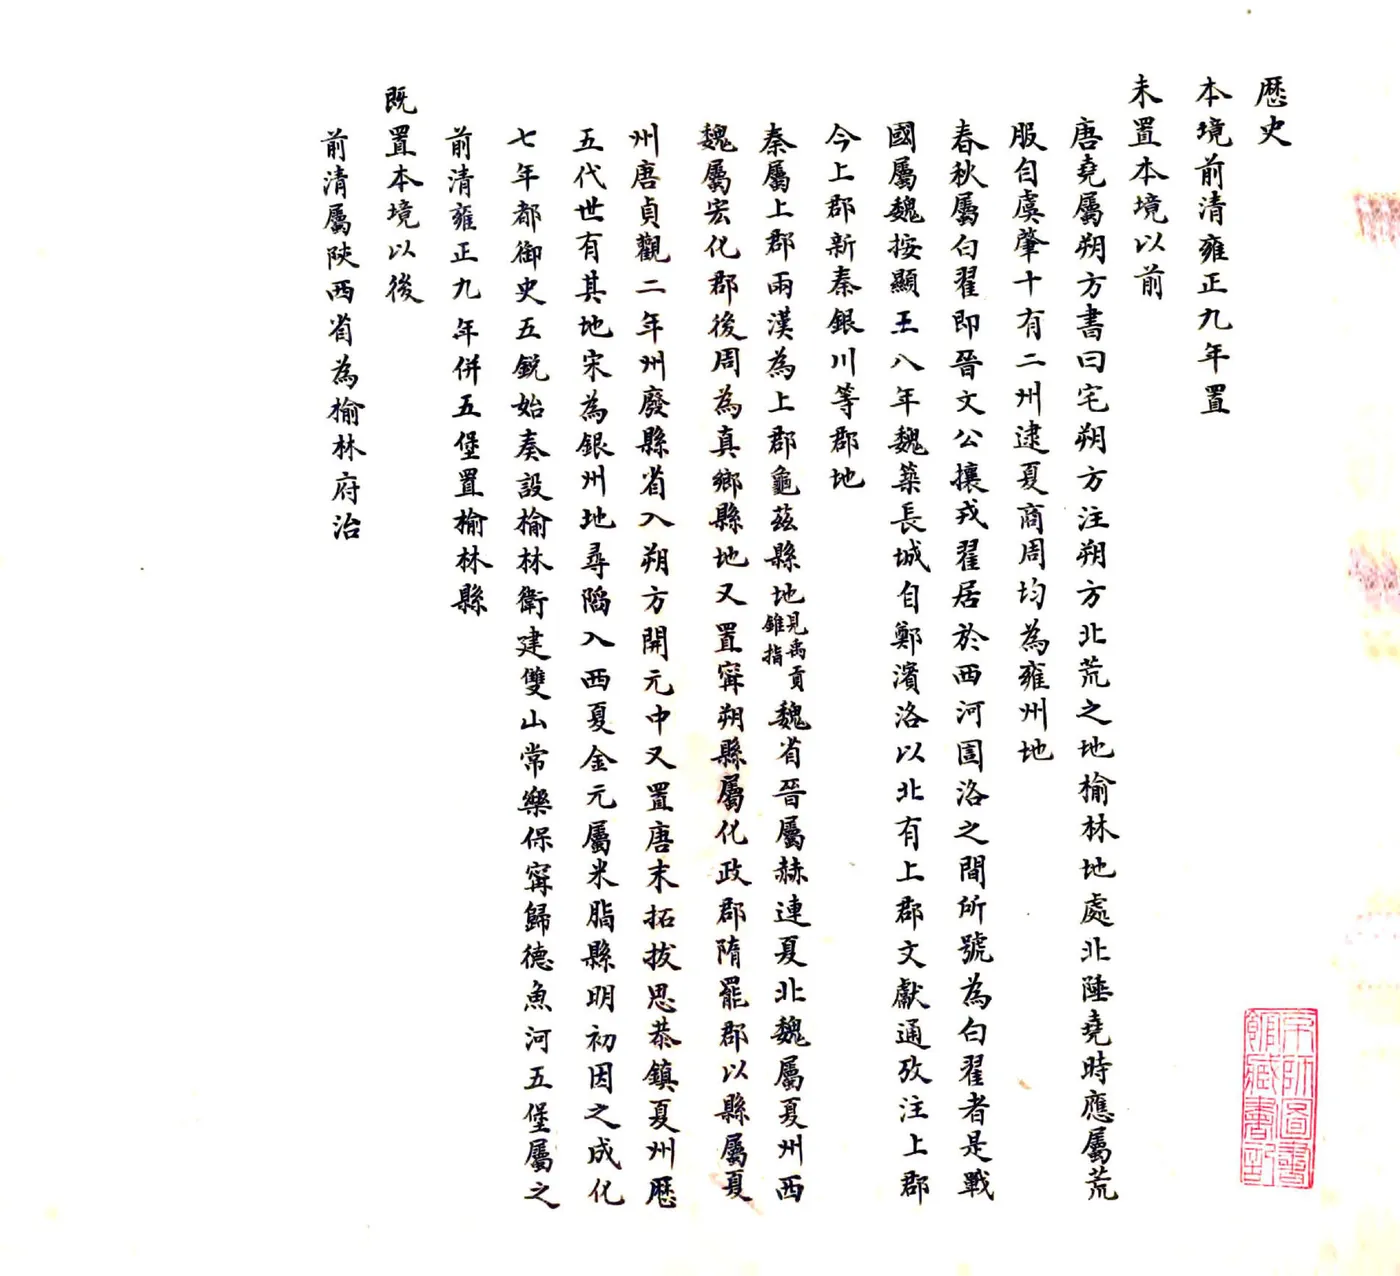 歷史
本境前清雍正九年置
未置本境以前
唐堯屬朔方書曰宅朔方注朔方北荒之地榆林地處北陲堯時應屬荒
服自虞肇十有二州逮夏商周均為雍州地
春秋屬白翟即晉文公攘戎翟居於西河圁洛之間所號為白翟者是戰
國屬魏按顯王八年魏築長城自鄭濱洛以北有上郡文獻通攷注上郡
今上郡新秦銀川等郡地
秦屬上郡兩漢為上郡龜茲縣地見禹貢錐指魏省晉屬赫連夏北魏屬夏州西
魏屬宏化郡後周為真鄉縣地又置寗朔縣屬化政郡隋罷郡以縣屬夏
州唐貞觀二年州廢縣省入朔方開元中又置唐末拓拔思恭鎮夏州歷
五代世有其地宋為銀州地尋陷入西夏金元屬米脂縣明初因之成化
七年都御史五銳始奏設榆林衛建雙山常樂保寗歸德魚河五堡屬之
前清雍正九年併五堡置榆林縣
既置本境以後
前清屬陝西省為榆林府治
京師圖書
館藏書記